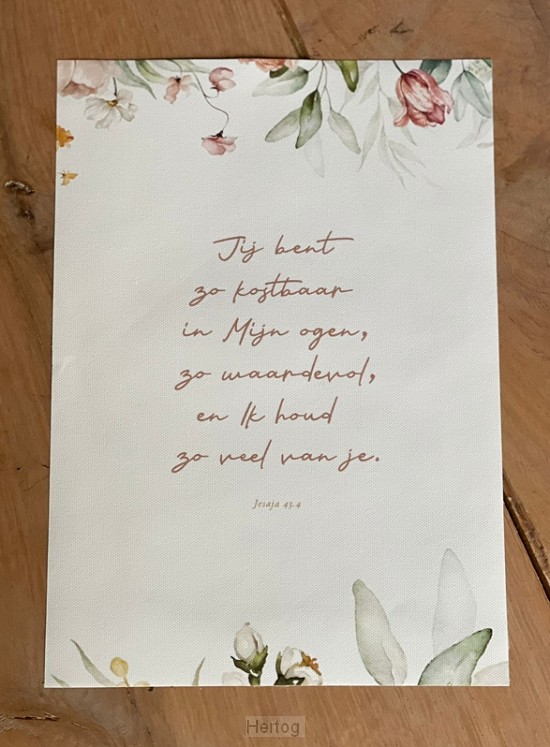 Jij bent
zo kostbaar
in Mijn ogen,
zo waardevol,
en Ik houd
zo veel van je.
Jesaja 43.4
Hertog